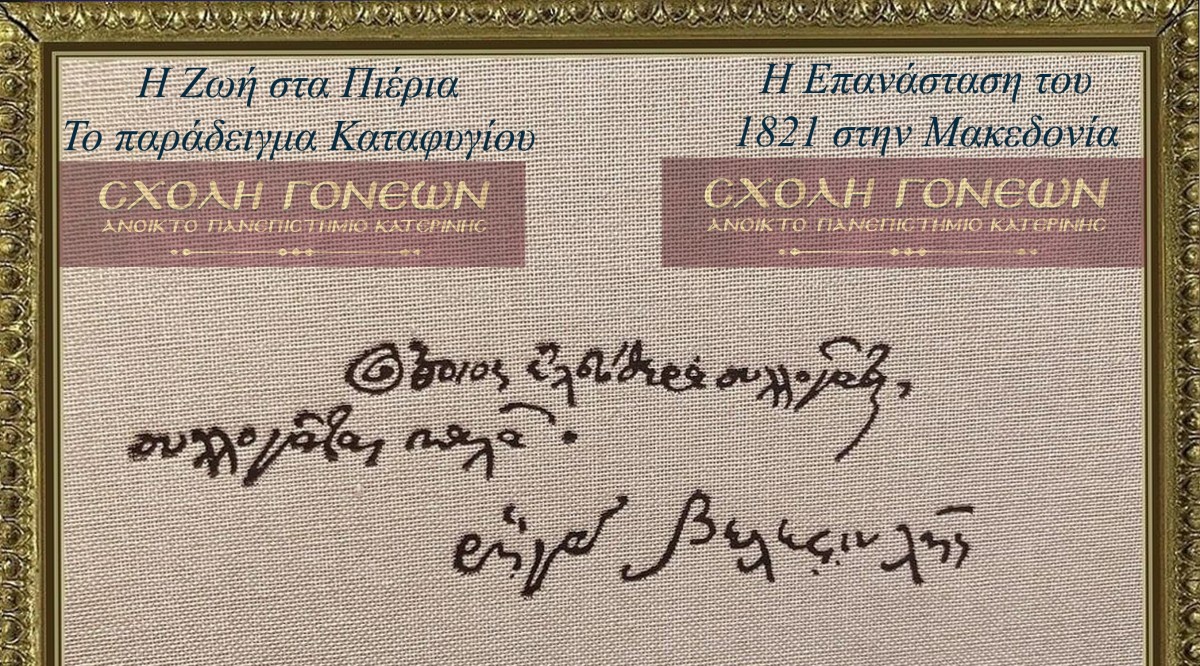 Η Ζωή στα Πιέρια
Το παράδειγμα Καταφυγίου
ΣΧΟΛΗ ΓΟΝΕΩΝ
ΑΝΟΙΚΤΟ ΠΑΝΕΠΙΣΤΗΜΙΟ ΚΑΤΕΡΙΝΗΣ
Η Επανάσταση του
1821 στην Μακεδονία
ΣΧΟΛΗ ΓΟΝΕΩΝ
ΑΝΟΙΚΤΟ ΠΑΝΕΠΙΣΤΗΜΙΟ ΚΑΤΕΡΙΝΗΣ
Ὅποιος ἐλεύθερα συλλογᾶται,
συλλογᾶται καλά.
Ῥήγας Βελεστινλής